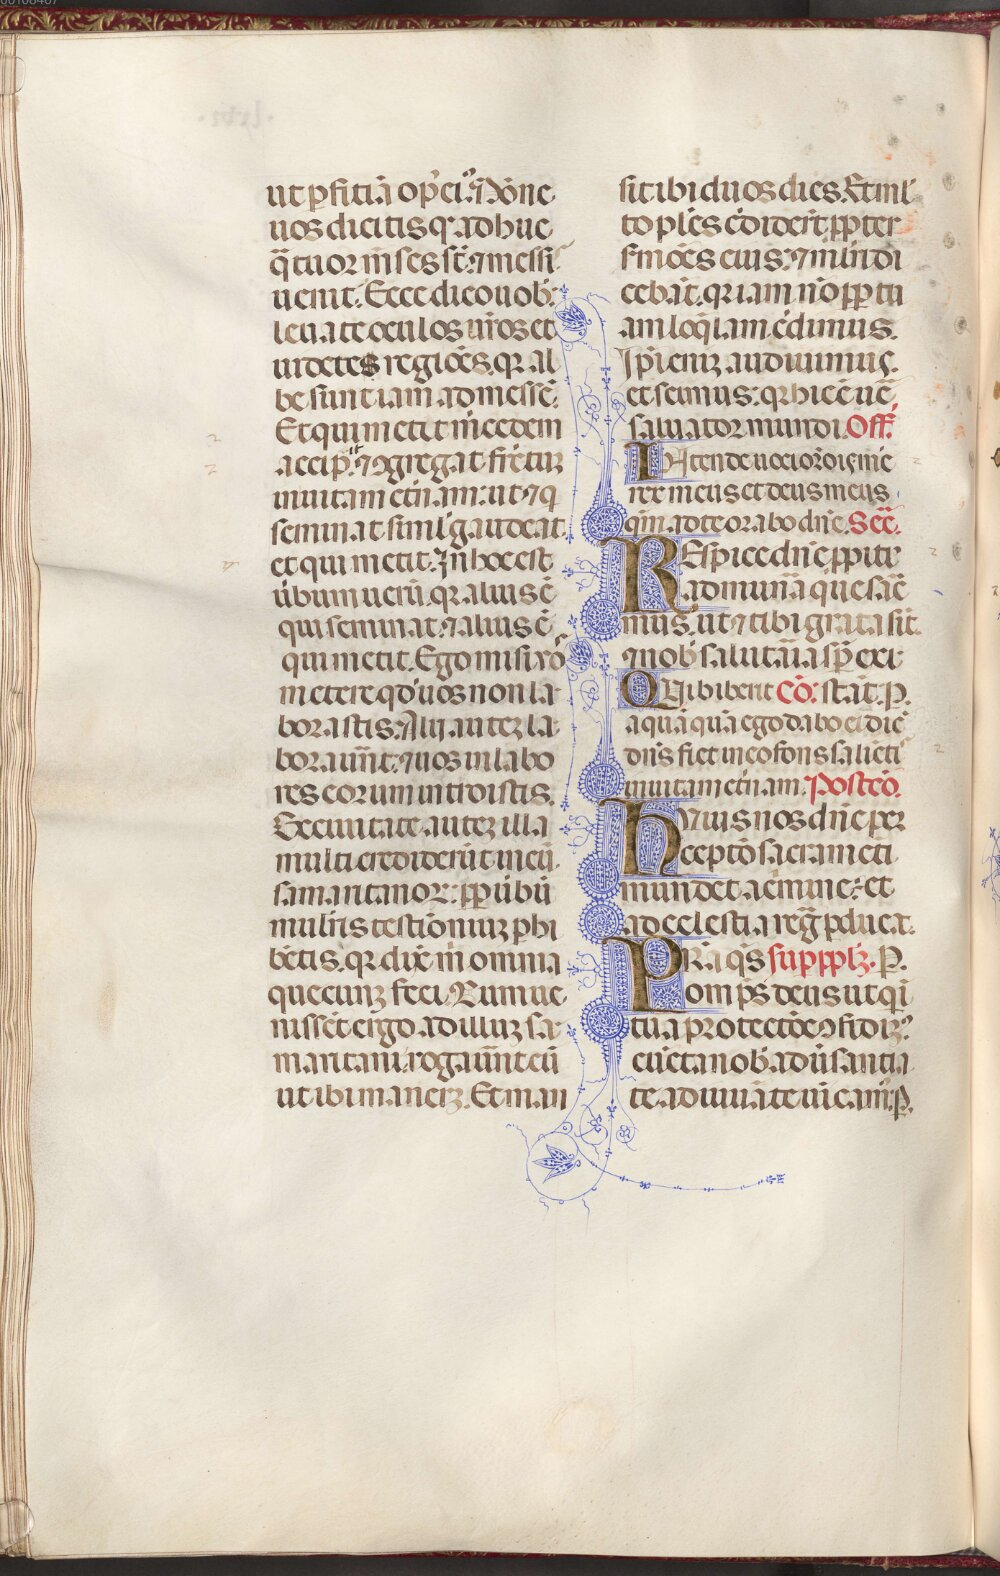 ut ꝑfitiā opꝰ eiꝰ. Nōne
uos dicitis qꝛ adhuc
q̄tuor mēses st̄. ⁊ messis
uenit. Ecce dico uob̄:
leuate oculos ur̄os et
uidetes regiōes. qꝛ al
be sunt iam ad messē.
Et qui metit mcedem
accip̄. ⁊ ꝯgregat fr̄ctuꝫ
in uitam etn̄am: ut ⁊ q̄
seminat siml̄ gaudeat
et qui metit. In hoc est
ūbum ueruꝫ. qꝛ alius ē
qui seminat. ⁊ alius ē
qui metit. Ego misi uōs
metere qd̓ uos non la
borastis. Alij auteꝫ la
borauer̄nt. ⁊ uos in labo
res eorum introistis.
Ex ciuitate auteꝫ illa
multi crediderūt in eū
samaritanoꝝ: ꝓpꝑ ūbū
mulieris testimoniuꝫ ꝑhi
bētis. qꝛ dixit m̄ omnia
quecunqꝫ feci. Cum ue
nissēt ergo ad illuꝫ sa
maritani: rogauer̄nt eū
ut ibi maneꝛet. Et man
sit ibi duos dies. Et ml̄
to pl̄es credider̄t ꝓpter
sermōes eius: ⁊ mulieri di
cebāt. qꝛ iam nō ꝓpꝑ tu
am loq̄lam credimus.
Ipsi eniꝫ audiuimus.
et scimus: qꝛ hic ē uer̄
saluator mundi. Off.
INtende uoci orōis mee
rex meus et deus meus
qm̄ ad te orabo dn̄e. Sec̄.
REspice dn̄e ꝓpiti
ad munera que sac̄
mus. ut ⁊ tibi grata sit.
⁊ nob̄ salutaria sp̄ exi
QUi biberit Cō: stāt. P.
aquā quā ego dabo ei dic̄
dn̄s fiet in eo fons saliēti
in uitam etn̄am. Postcō.
HUius nos dn̄e per
ceptō sacramēti
mundet a crimine: et
ad celestia regn̄ ꝑducat.
PRa q̄s supppl̄z. P.
om̄ps deus ut qui
tua protectōe ꝯfidimꝰ
cūcta nob̄ aduersantia
te adiuuāte uīcamꝰ. ꝑ.